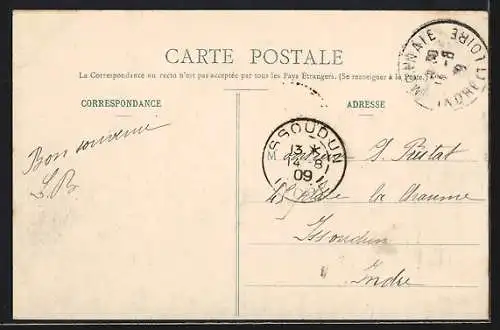 CARTE POSTALE
La Correspondance au recto n'est pas acceptée par tous les Pays Étrangers. (Se renseigner à la Poste.)
CORRESPONDANCE
ADRESSE
MONNAIE
(INDRE & LOIRE)
ISSOUDUN
13 *
14-8
09
INDRE
Bon souvenir
S. B.
M
la Chaume
Issoudun
Indre